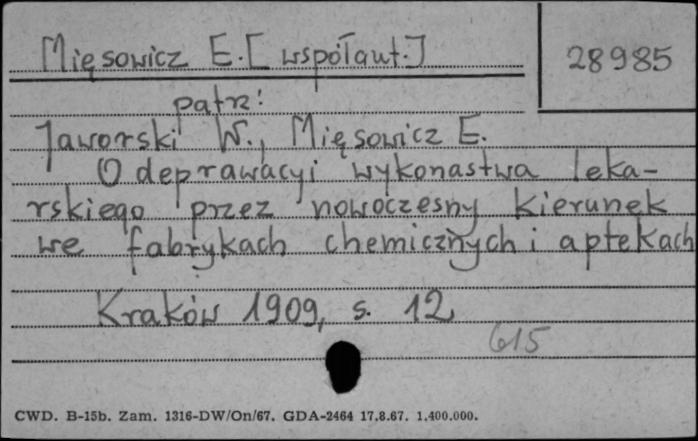 Mięsowicz E. [współaut.]
28985
patrz:
Jaworski W., Mięsowicz E.
O deprawacyi wykonastwa leka-
rskiego przez nowoczesny kierunek
we fabrykach chemicznych i aptekach
Kraków 1909, s. 12
615
CWD. B-15b. Zam. 1316-DW/On/67. GDA-2464 17.8.67. 1.400.000.